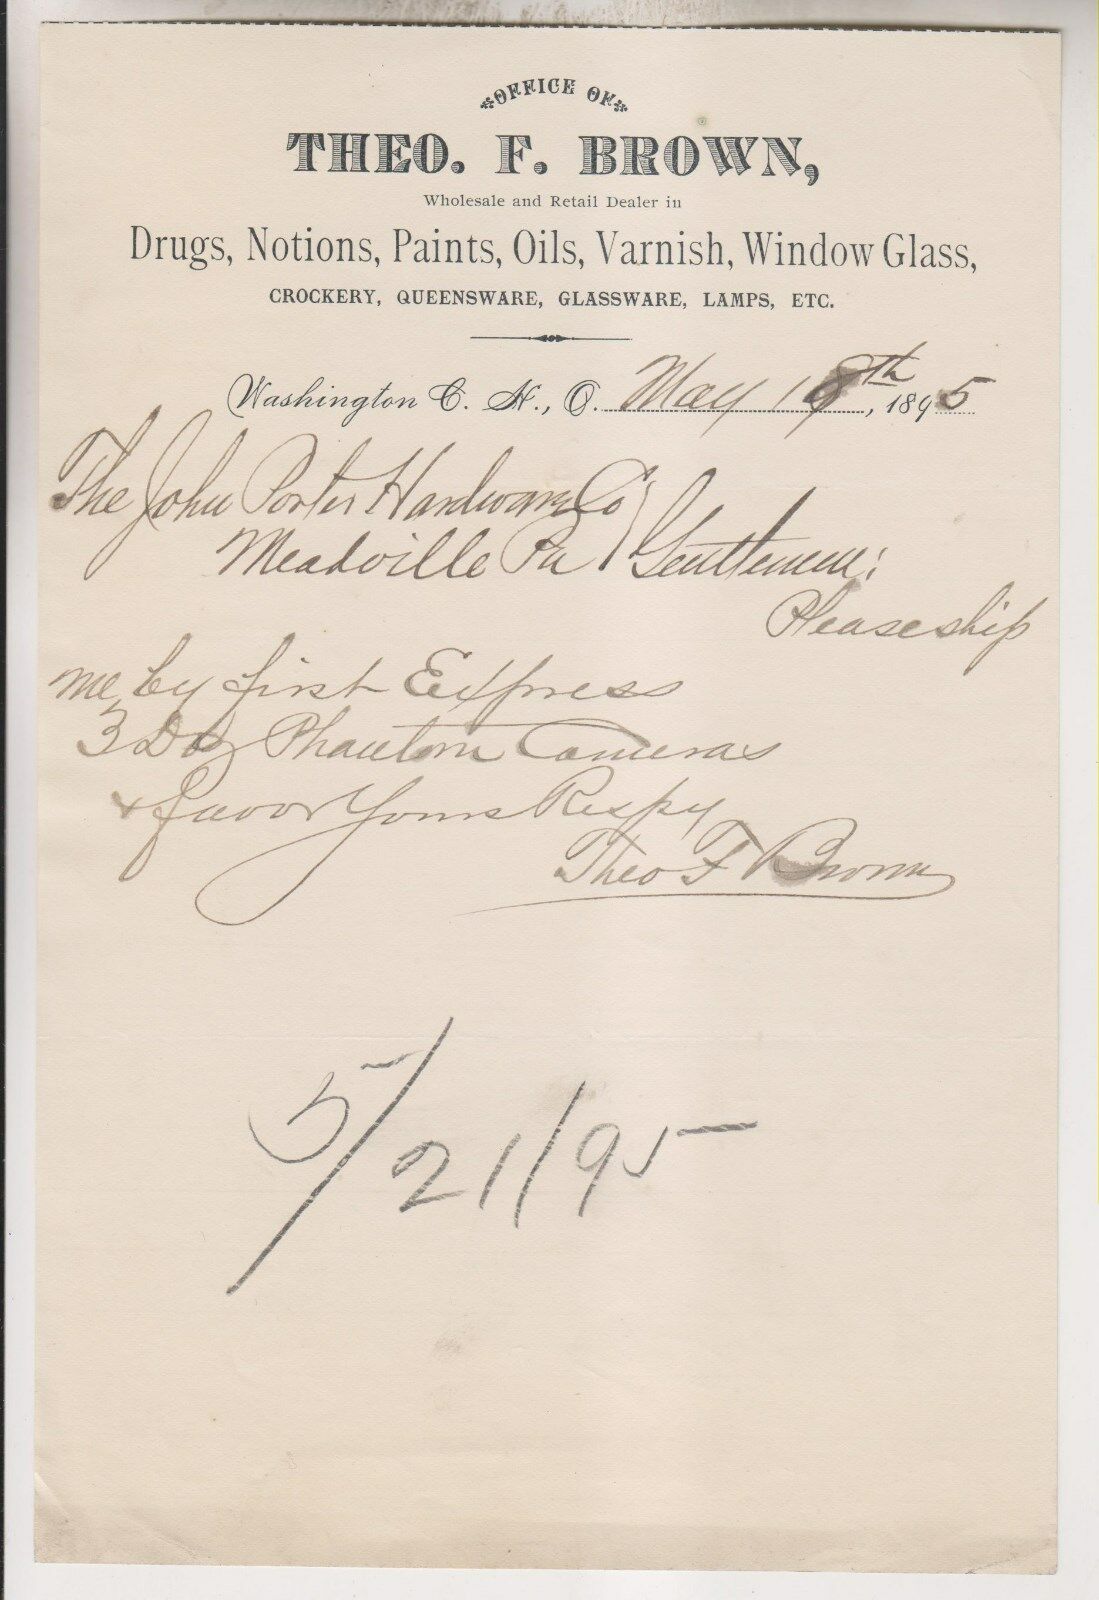 OFFICE OF
THEO. F. BROWN,
Wholesale and Retail Dealer in
Drugs, Notions, Paints, Oils, Varnish, Window Glass,
CROCKERY, QUEENSWARE, GLASSWARE, LAMPS, ETC.
Washington C. H., O. May 18th, 1895
The John Porter Hardware Co
Meadville Pa Gentlemen:
Please ship
me by first Express
3 Doz Phantom Cameras
& favor Yours Respy
Theo F Brown
5/21/95